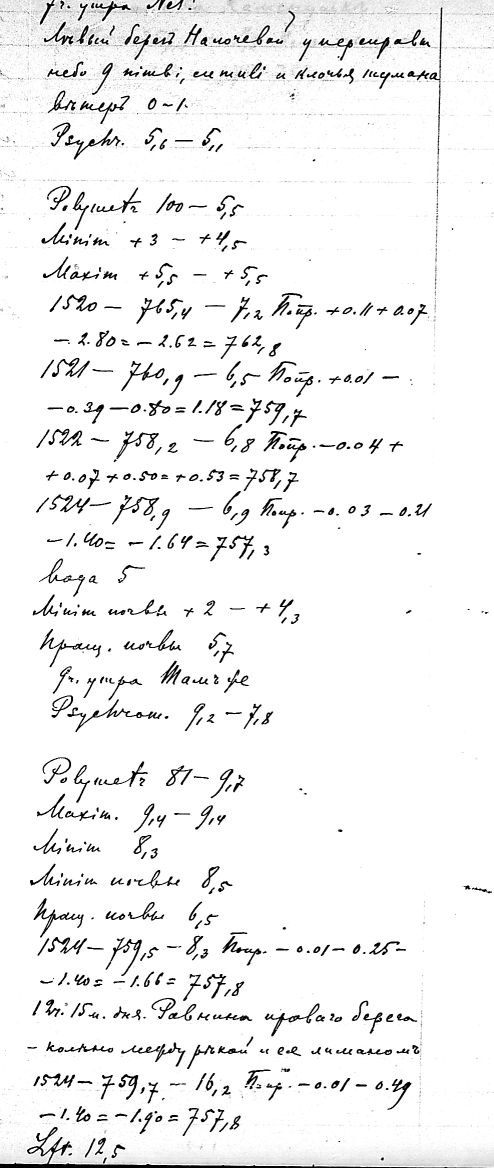 7ч. утра №1.
Лѣвый берегъ Налочевой у переправы
небо 9 nimbi, cumuli и клочья тумана
вѣтеръ 0-1.
Psychr. 5,6 — 5,1
Polymetr 100 — 5,5
Minim +3 — +4,5
Maxim +5,5 — +5,5
1520 — 765,4 — 7,2 Попр. +0.11 +0.07
— 2.80 = — 2.62 = 762,8
1521 — 760,9 — 6,5 Попр. +0.01 —
— 0.39 — 0.80 = 1.18 = 759,7
1522 — 758,2 — 6,8 Попр. —0.04 +
+0.07 +0.50 = +0.53 = 758,7
1524 — 758,9 — 6,9 Попр. —0.03 —0.21
—1.40 = —1.64 = 757,3
вода 5
Minim почвы +2 — +4,3
Пращ. почвы 5,7
9ч. утра Тамъ же
Psychrom. 9,2 — 7,8
Polymetr 81 — 9,7
Maxim. 9,4 — 9,4
Minim 8,3
Minim почвы 8,5
Пращ. почвы 6,5
1524 — 759,5 — 8,3 Попр. —0.01 —0.25 —
—1.40 = —1.66 = 757,8
12ч. 15м. дня. Равнина праваго берега
— колѣно между рѣкой и ея лиманомъ
1524 — 759,7 — 16,2 Попр. —0.01 —0.49
—1.40 = —1.90 = 757,8
Lft. 12,5